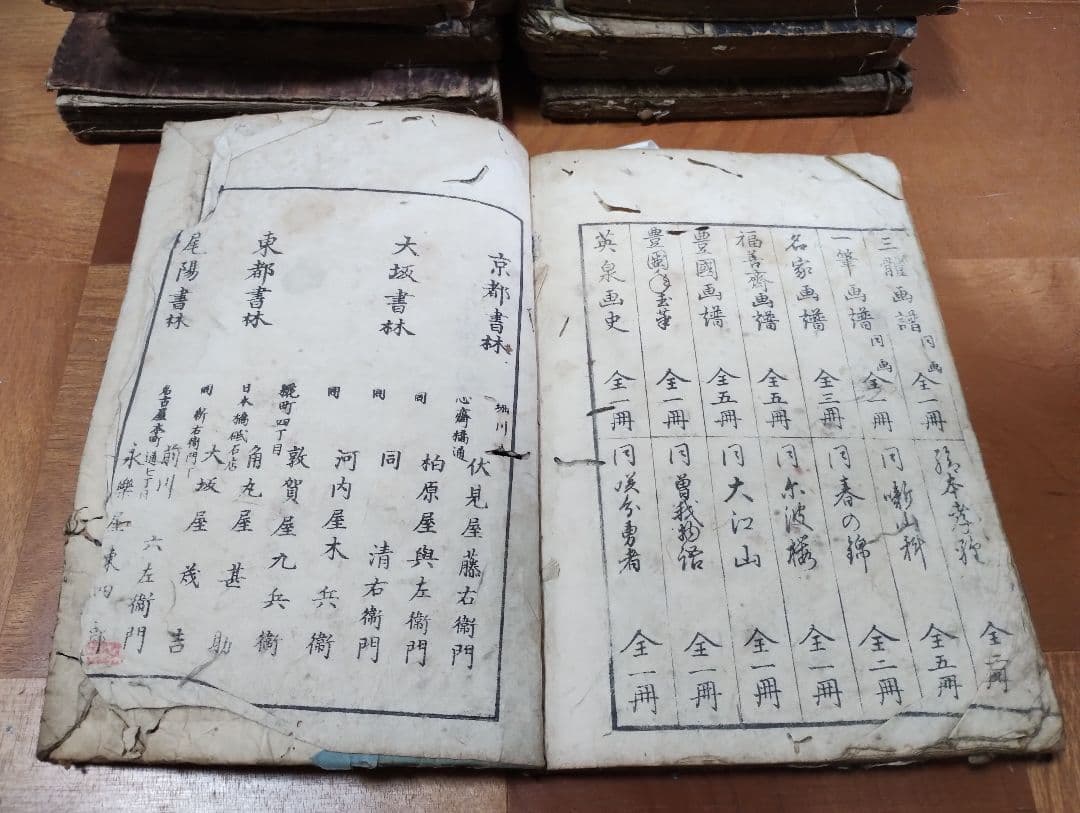 三體画譜 同画 全一冊
一筆画譜 同画 全一冊
名家画譜 全三冊
福善齋画譜 全五冊
豊國画譜 全五冊
豊國年玉筆 全一冊
英泉画史 全一冊
絵本孝經 全二冊
同 噺山科 全五冊
同 春の錦 全二冊
同 尓波桜 全一冊
同 大江山 全一冊
同 曽我物語 全一冊
同 咲分勇者 全一冊
京都書林
堀川
伏見屋藤右衛門
大坂書林
心齋橋通
柏原屋與左衛門
同
同 清右衛門
同
河内屋木兵衛
同
東都書林
麹町四丁目
敦賀屋九兵衛
角丸屋甚助
日本橋砥石店
大坂屋茂吉
同 新右衛門丁
前川六左衛門
尾陽書林
名古屋本町通七丁目
永樂屋東四郎